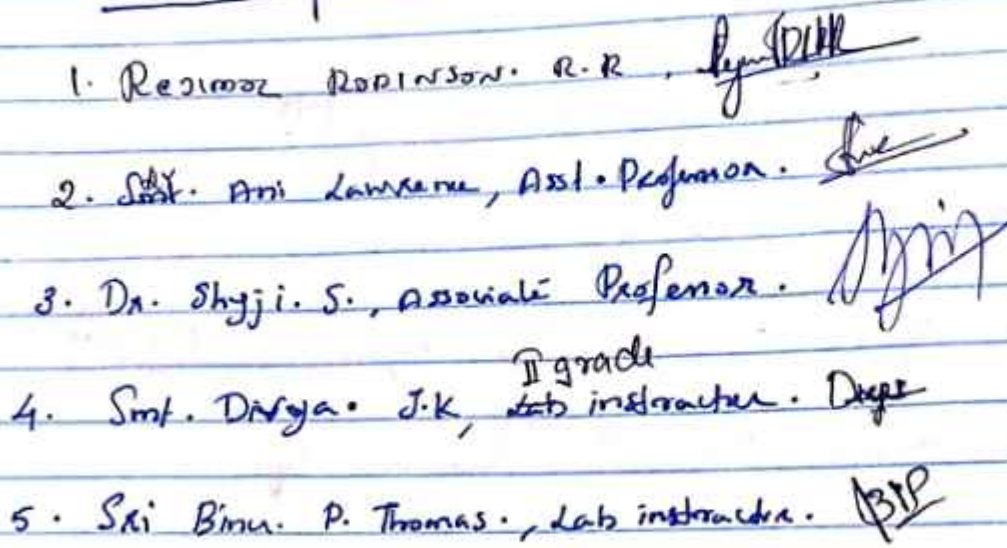 1. Rejimol Robinson. R.R,
2. Smt. Ani Lawrence, Asst. Professor.
3. Dr. Shyji. S., Associate Professor.
II grade
4. Smt. Divya. J.K, Lab instructor.
5. Sri Binu. P. Thomas., Lab instructor.